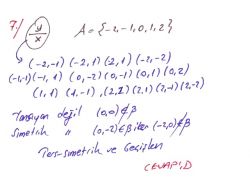 7.) y/x A = {-2,-1,0,1,2}
(-2,-1) (-2,1) (-2,1) (-2,-2)
(-1,-1) (-1,1) (0,-2) (0,-1) (0,1) (0,2)
(1,1) (1,-1), (2,2) (2,1) (2,-1) (2,-2)
Yansıyan değil (0,0)∉β
Simetrik " (0,-2)∈β iken (-2,0)∉β
Ters-simetrik ve Geçişken
CEVAP: D